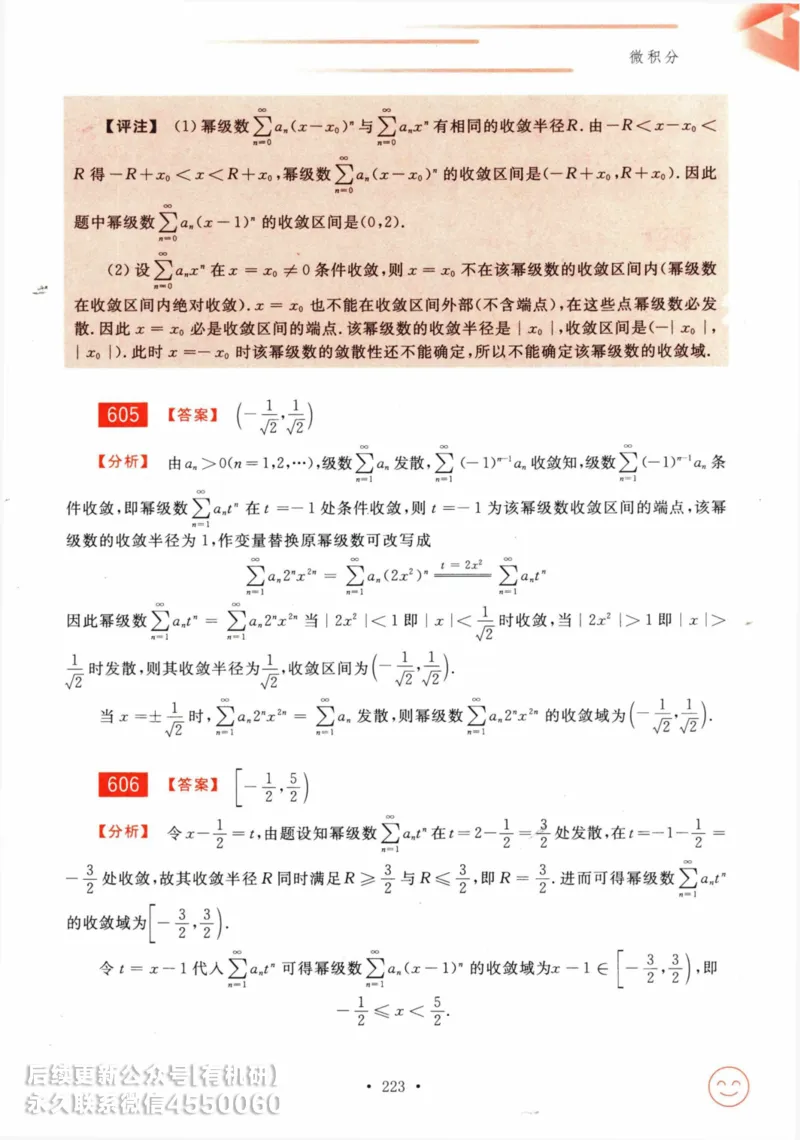 微积分
【评注】 (1)幂级数$\sum_{n=0}^{\infty}a_n(x-x_0)^n$与$\sum_{n=0}^{\infty}a_nx^n$有相同的收敛半径R.由$-R<x-x_0<$
$R$得$-R+x_0<x<R+x_0$,幂级数$\sum_{n=0}^{\infty}a_n(x-x_0)^n$的收敛区间是$(-R+x_0,R+x_0)$.因此
题中幂级数$\sum_{n=0}^{\infty}a_n(x-1)^n$的收敛区间是(0,2).
(2)设$\sum_{n=0}^{\infty}a_nx^n$在$x=x_0\neq0$条件收敛,则$x=x_0$不在该幂级数的收敛区间内(幂级数
在收敛区间内绝对收敛).$x=x_0$也不能在收敛区间外部(不含端点),在这些点幂级数必发
散.因此$x=x_0$必是收敛区间的端点.该幂级数的收敛半径是$|x_0|$,收敛区间是$(-|x_0|,$
$|x_0|)$.此时$x=-x_0$时该幂级数的敛散性还不能确定,所以不能确定该幂级数的收敛域.
605 【答案】 $\left(-\frac{1}{\sqrt{2}},\frac{1}{\sqrt{2}}\right)$
【分析】 由$a_n>0(n=1,2,\cdots)$,级数$\sum_{n=1}^{\infty}a_n$发散,$\sum_{n=1}^{\infty}(-1)^{n-1}a_n$收敛知,级数$\sum_{n=1}^{\infty}(-1)^{n-1}a_n$条
件收敛,即幂级数$\sum_{n=1}^{\infty}a_nt^n$在$t=-1$处条件收敛,则$t=-1$为该幂级数收敛区间的端点,该幂
级数的收敛半径为1,作变量替换原幂级数可改写成
$\sum_{n=1}^{\infty}a_n2^nx^{2n}=\sum_{n=1}^{\infty}a_n(2x^2)^n\xlongequal{t=2x^2}\sum_{n=1}^{\infty}a_nt^n$
因此幂级数$\sum_{n=1}^{\infty}a_nt^n=\sum_{n=1}^{\infty}a_n2^nx^{2n}$当$|2x^2|<1$即$|x|<\frac{1}{\sqrt{2}}$时收敛,当$|2x^2|>1$即$|x|>$
$\frac{1}{\sqrt{2}}$时发散,则其收敛半径为$\frac{1}{\sqrt{2}}$,收敛区间为$\left(-\frac{1}{\sqrt{2}},\frac{1}{\sqrt{2}}\right)$.
当$x=\pm\frac{1}{\sqrt{2}}$时,$\sum_{n=1}^{\infty}a_n2^nx^{2n}=\sum_{n=1}^{\infty}a_n$发散,则幂级数$\sum_{n=1}^{\infty}a_n2^nx^{2n}$的收敛域为$\left(-\frac{1}{\sqrt{2}},\frac{1}{\sqrt{2}}\right)$.
606 【答案】 $\left[-\frac{1}{2},\frac{5}{2}\right)$
【分析】 令$x-\frac{1}{2}=t$,由题设知幂级数$\sum_{n=1}^{\infty}a_nt^n$在$t=2-\frac{1}{2}=\frac{3}{2}$处发散,在$t=-1-\frac{1}{2}=$
$-\frac{3}{2}$处收敛,故其收敛半径$R$同时满足$R\geqslant\frac{3}{2}$与$R\leqslant\frac{3}{2}$,即$R=\frac{3}{2}$.进而可得幂级数$\sum_{n=1}^{\infty}a_nt^n$
的收敛域为$\left[-\frac{3}{2},\frac{3}{2}\right)$.
令$t=x-1$代入$\sum_{n=1}^{\infty}a_nt^n$可得幂级数$\sum_{n=1}^{\infty}a_n(x-1)^n$的收敛域为$x-1\in\left[-\frac{3}{2},\frac{3}{2}\right)$,即
$-\frac{1}{2}\leqslant x<\frac{5}{2}$.
后续更新公众号[有机研]
永久联系微信4550060
• 223 •